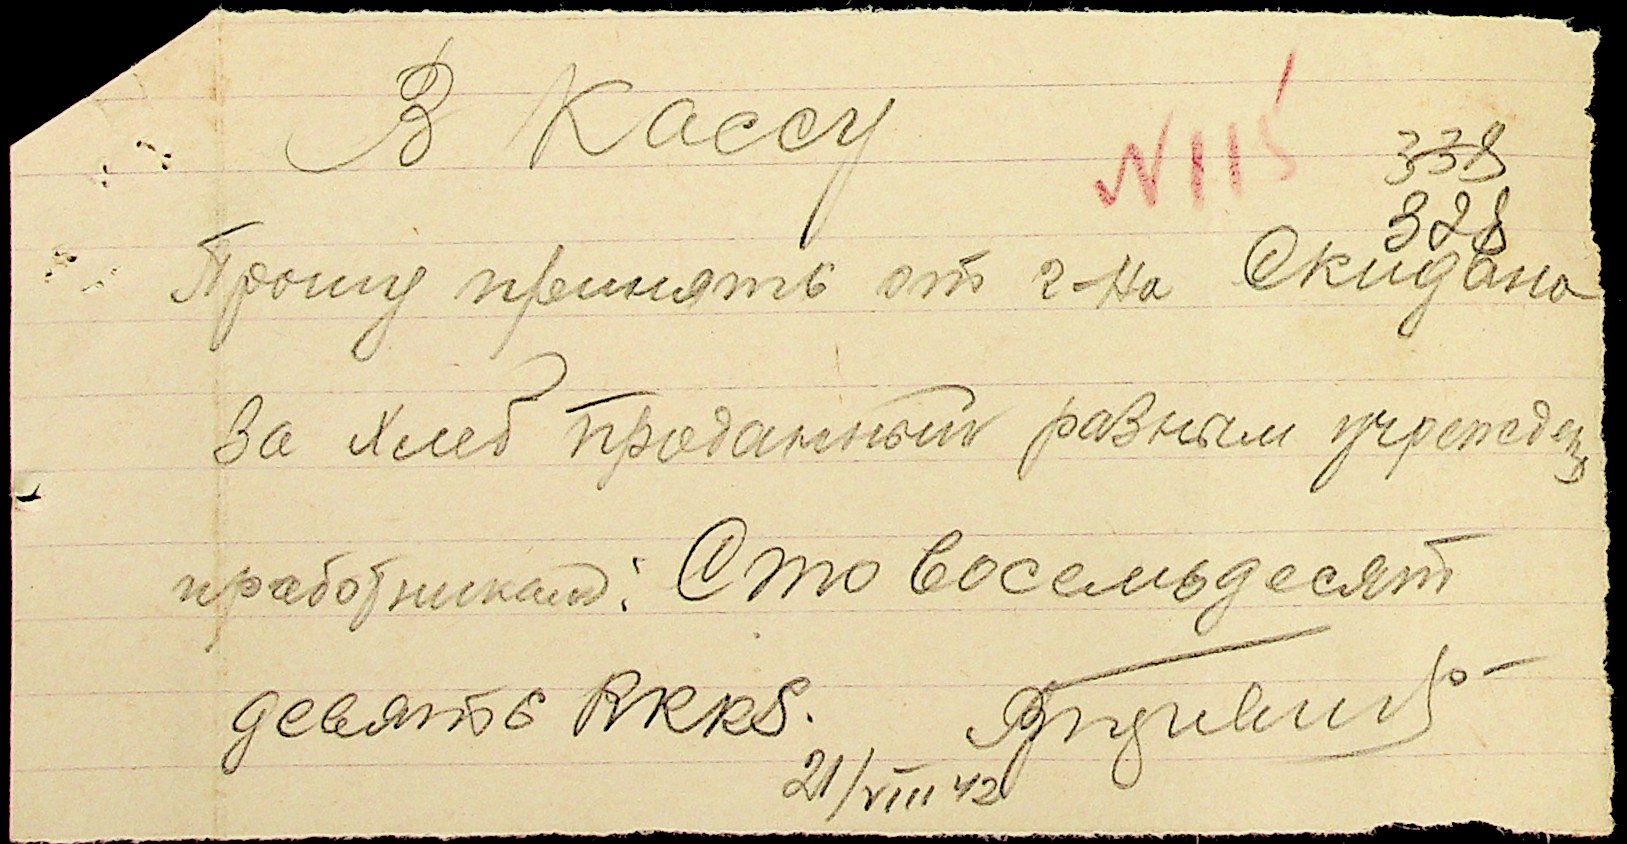 В Кассу
N 115
338
328
Прошу принять от г-на Скидана
За хлеб проданный разным учрежд
работникам: Сто восемьдесят
девять RKKS.
21/VIII 42